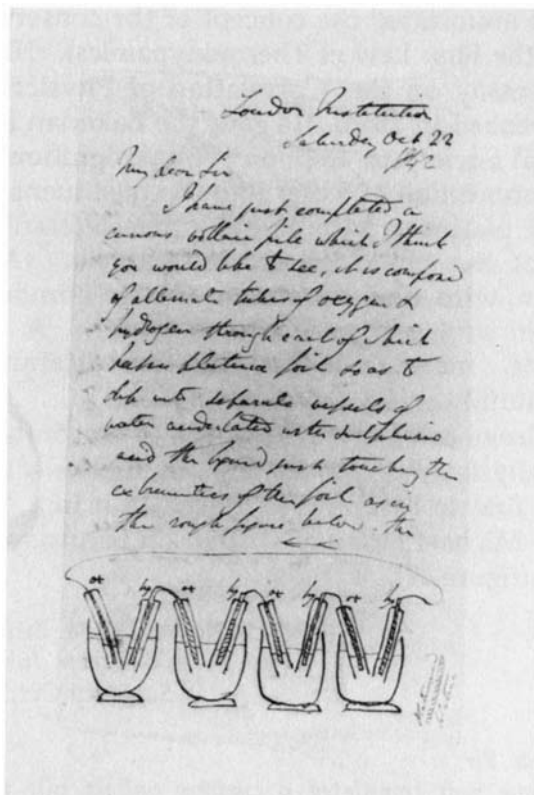 London Institution
Saturday Oct 22
My dear Sir
I have just completed a
curious voltaic pile which I think
you would like to see, it is composed
of alternate tubes of oxygen &
hydrogen through each of which
passes platina foil so as to
dip into separate vessels of
water acidulated with sulphuric
acid the liquid just touching the
extremities of the foil as in
the rough figure below. the
ox hy ox hy ox hy ox hy